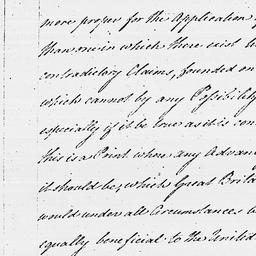 more proper for the Application
than one in which there exist
contradictory Claims, founded on
which cannot by any Possibility
especially if it be true as it is con
this is a Point where any Advan
it should be, which Great Brita
would under all Circumstances b
equally beneficial to the United